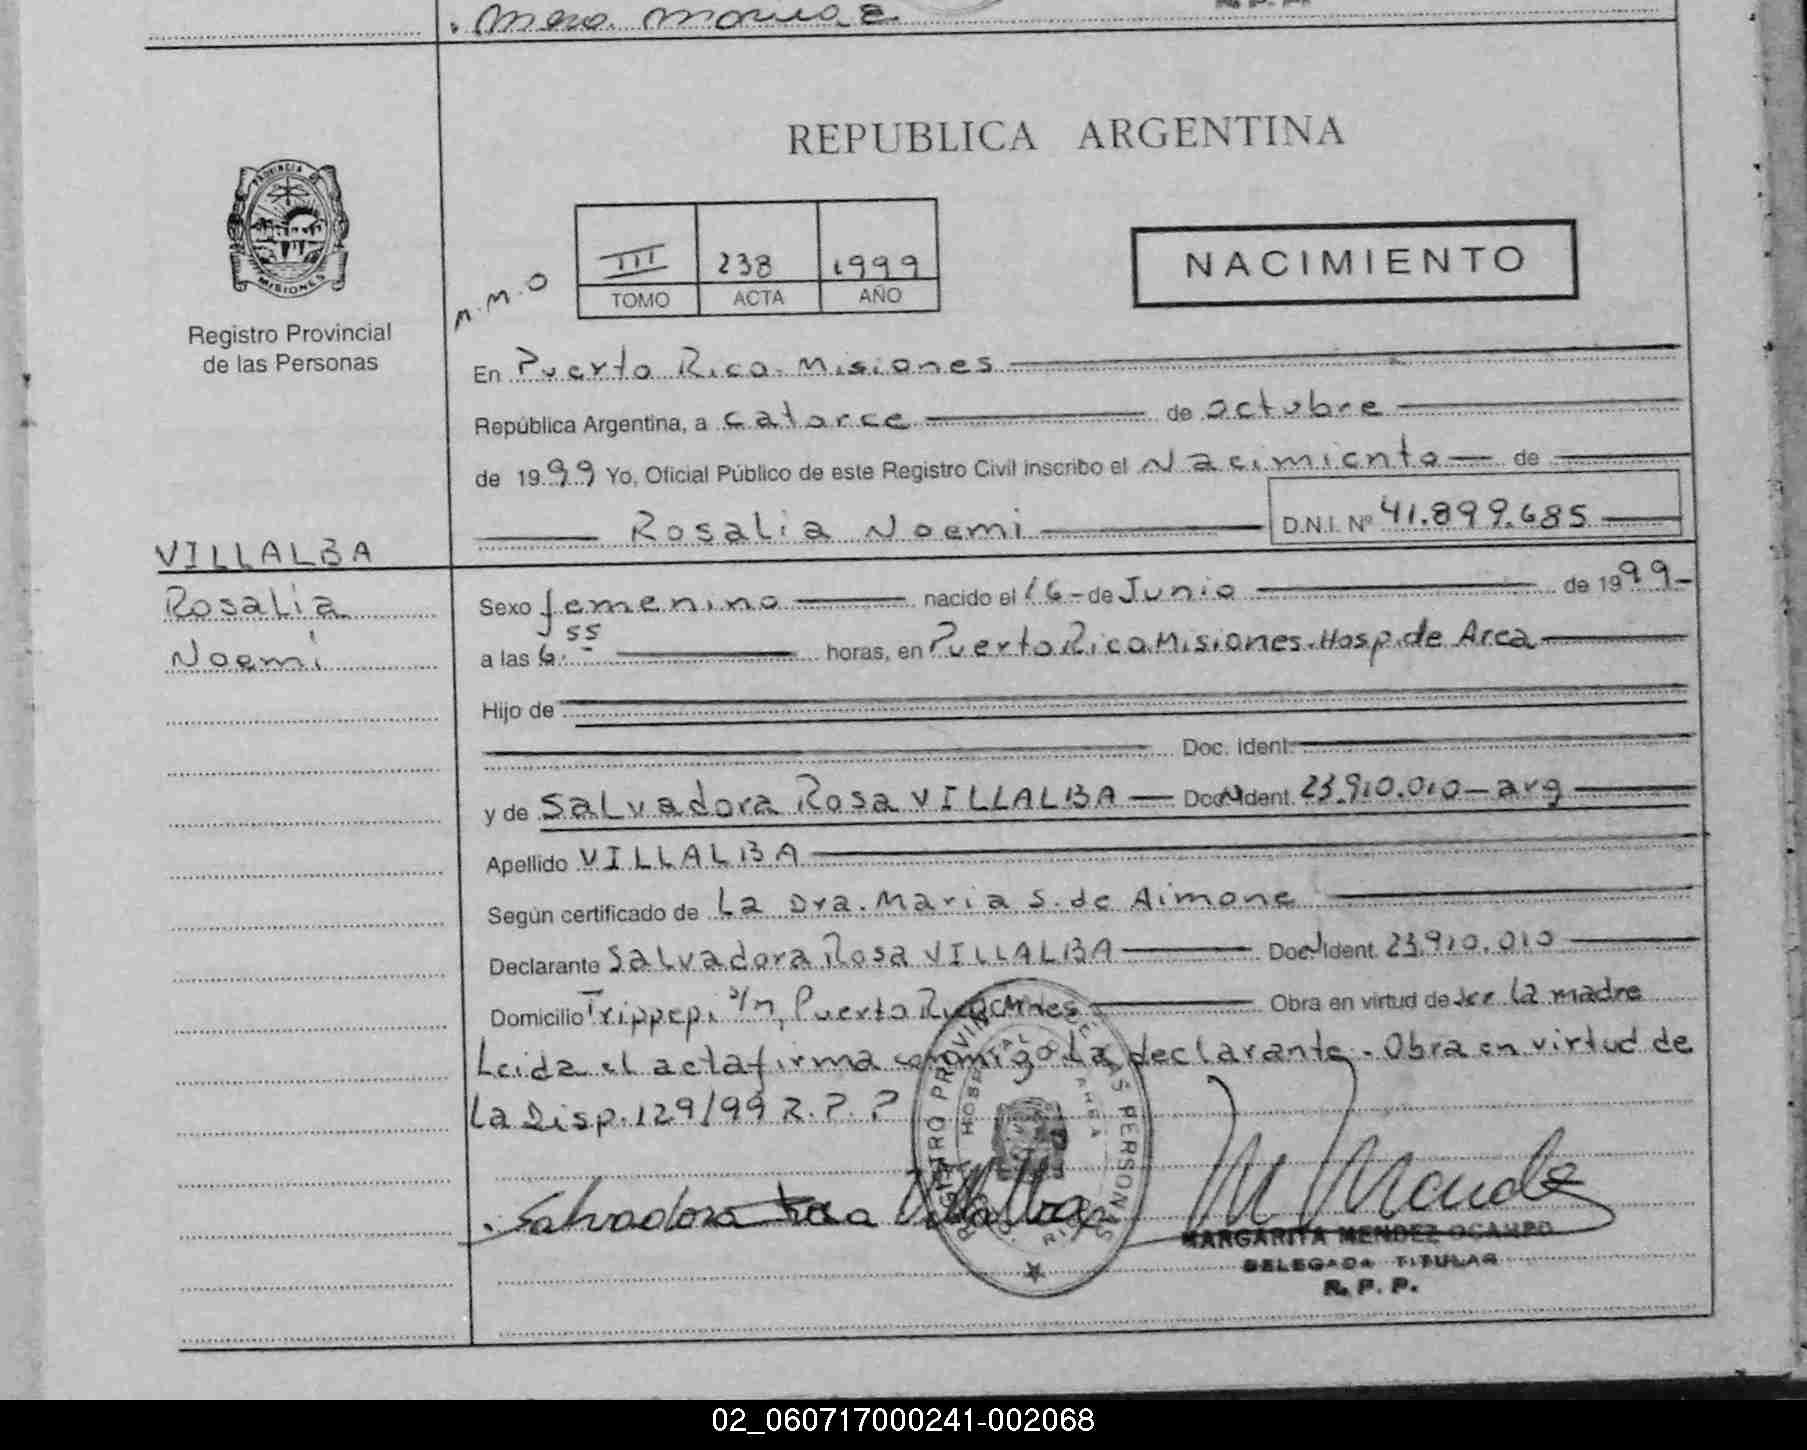 REPUBLICA ARGENTINA
PROVINCIA DE MISIONES
Registro Provincial
de las Personas
M.M.O
III 238 1999
TOMO ACTA AÑO
NACIMIENTO
En Puerto Rico. Misiones
República Argentina, a catorce de octubre
de 1999 Yo, Oficial Público de este Registro Civil inscribo el Nacimiento de
Rosalia Noemi D.N.I. Nº 41.899.685
VILLALBA
Rosalia
Noemi
Sexo femenino nacido el 16 - de Junio de 1999-
a las 6:55 horas, en Puerto Rico Misiones. Hosp. de Area
Hijo de
Doc. Ident.
y de Salvadora Rosa VILLALBA Doc. Ident. 23.910.010 - arg
Apellido VILLALBA
Según certificado de La Dra. Maria S. de Aimone
Declarante Salvadora Rosa VILLALBA Doc. Ident. 23.910.010
Domicilio Trippepi s/n, Puerto Rico Mnes Obra en virtud de ser la madre
Leida el acta firma conmigo La declarante. Obra en virtud de
La Disp. 129/99 R.P.P
Salvadora Rosa Villalba
M Mende
MARGARITA MENDEZ OCAMPO
DELEGADA TITULAR
R.P.P.
02_060717000241-002068